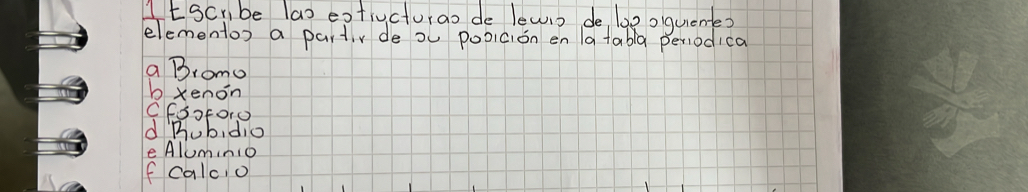 1 Escribe las estructuras de lewis de los siguientes
elementos a partir de su posición en la tabla periodica
a Bromo
b xenón
c fósforo
d Rubidio
e Aluminio
f calcio